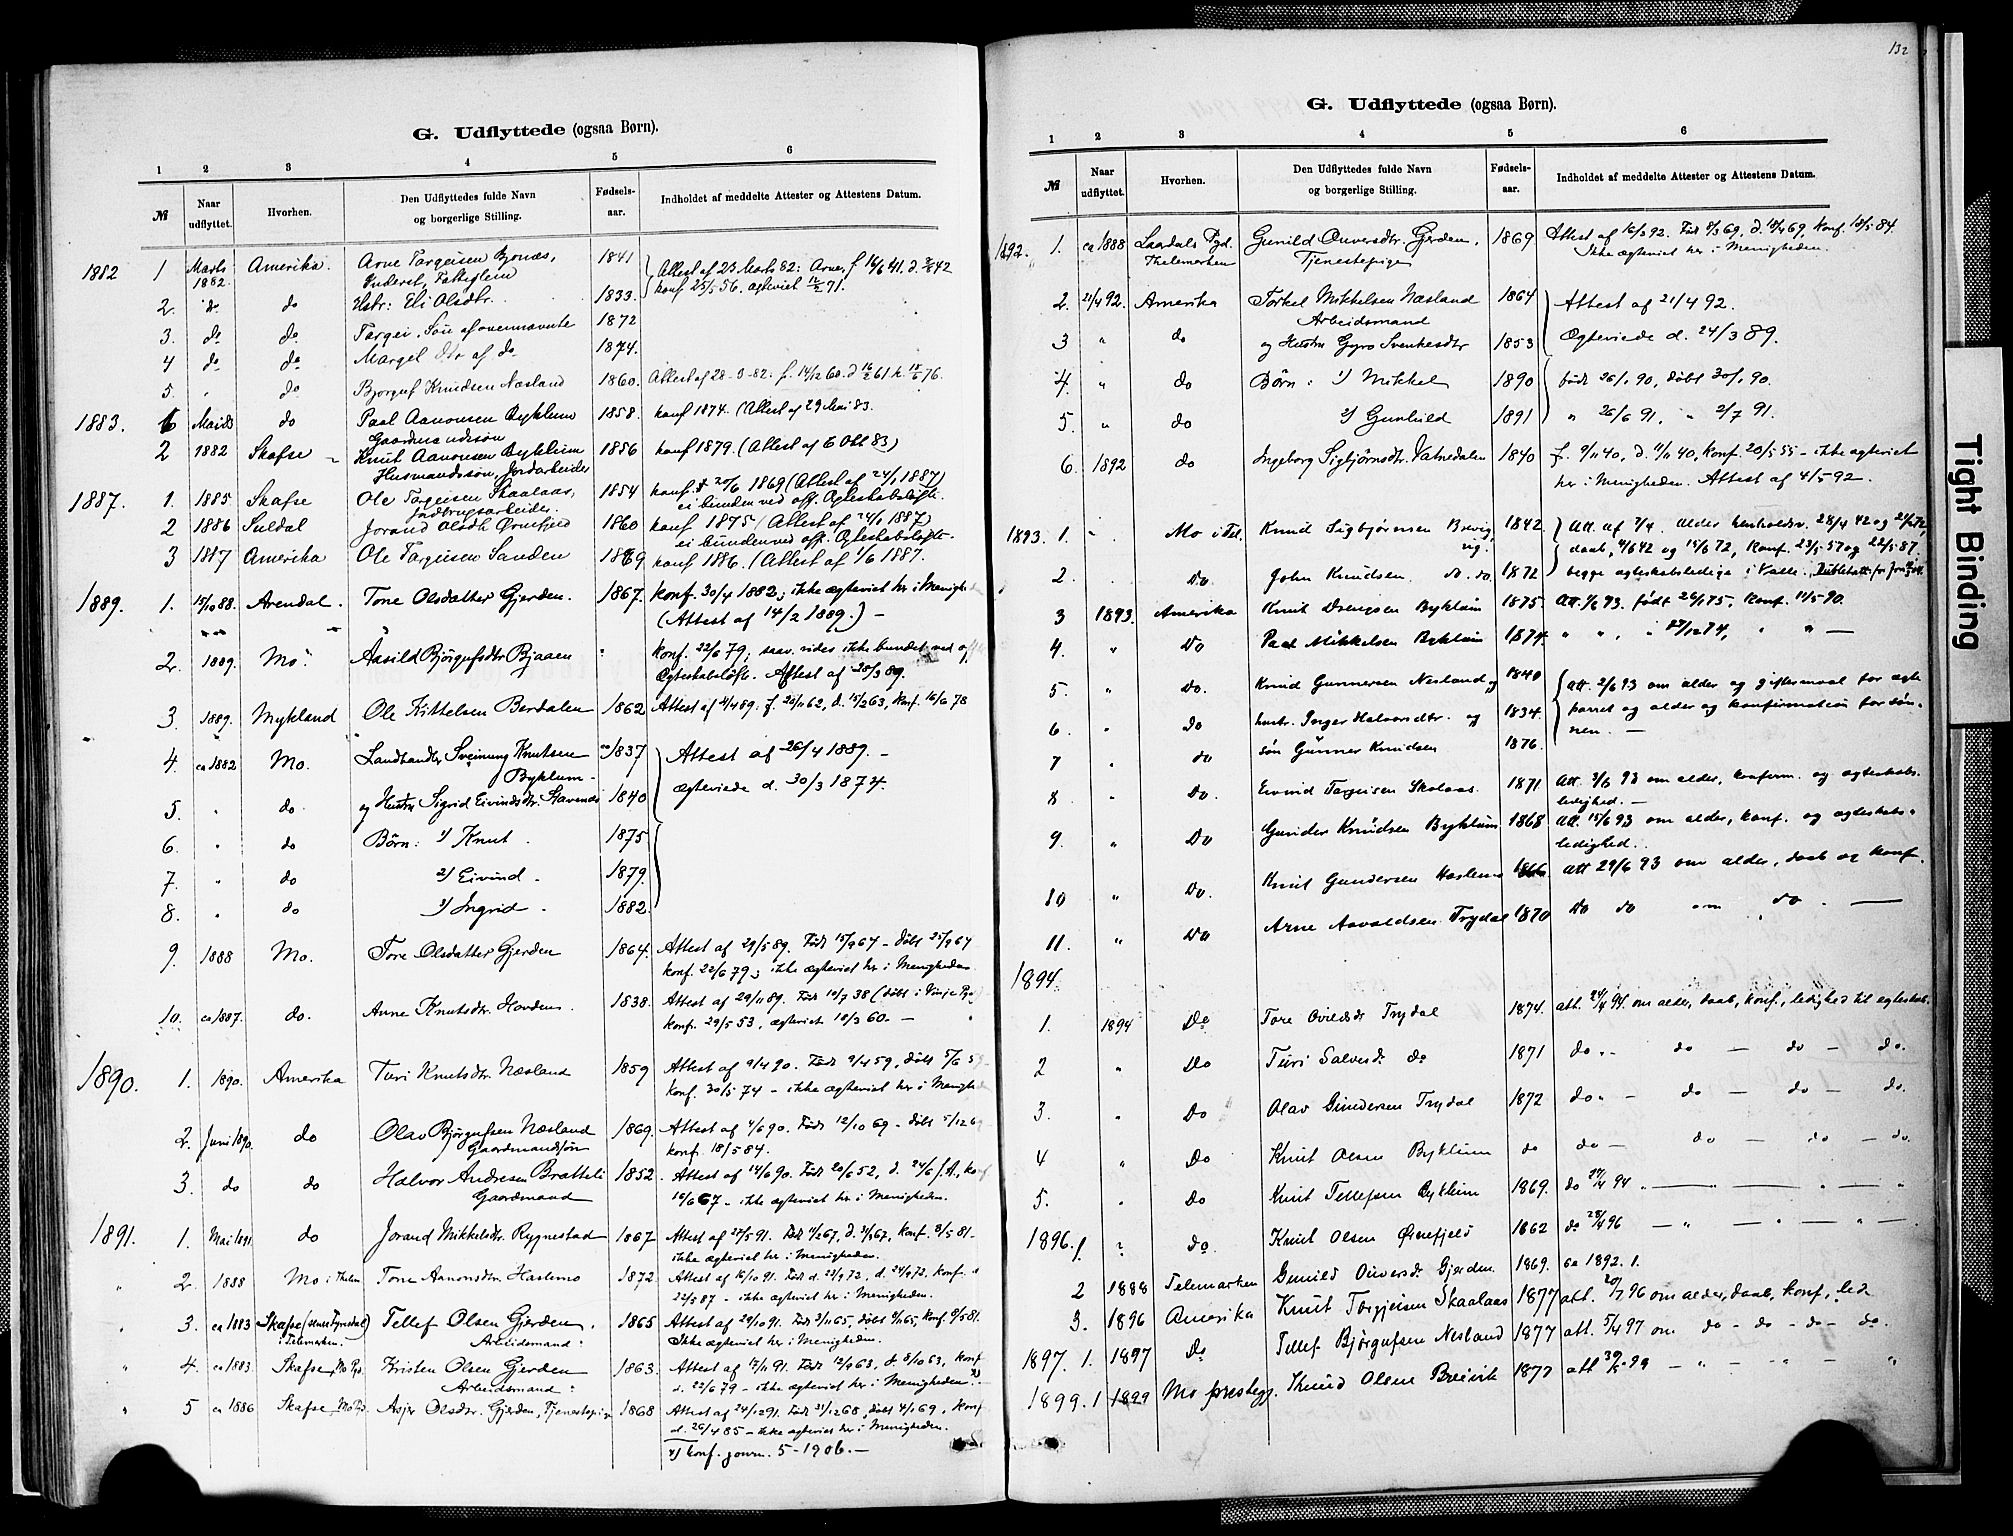 G. Udflyttede (ogsaa Børn).
1 2 3 4 5 6
№ Naar udflyttet. Hvorhen. Den Udflyttedes fulde Navn og borgerlige Stilling. Fødsels-aar. Indholdet af meddelte Attester og Attestens Datum.
1882 1 Marts 1882. Amerika. Arne Targeisen Bjones, 1841 Attest af 23 Marts 82: Arne, f 14/6 41. d.
Inderst, Fattiglem konf 25/5 56. ægteviet 12/2 71.
2. do do Hstr: Eli Olsdtr. 1833.
3. do do Targei, Søn af ovennævnte 1872
4 do do Margel Dtr af do 1874.
5. " do Bjørguf Knudsen Næsland 1860.
1883. 1 Mai 83 do Paal Aanonsen Byklum 1858. konf 1874. (Attest af 29 Mai 83.
Gaardmandssøn
2 1882 Skafse Knut Aanonsen Byklum 1856 konf 1879. (Attest af 6 Okt 83)
Husmandssøn, Jordarbeider
1887. 1. 1885 Skafse Ole Targeisen Skaalaas, 1854 konf. 20/6 1869 (Attest af 24/1 1887)
Jordbrugsarbeider. ei bunden ved off. Ægteskabsløfte.
2 1886 Suldal Jorand Olsdtr Ørnefjeld 1860 konf. 1875 (Attest af 24/1 1887)
ei bunden ved off. Ægteskabsløfte.
3 1887 Amerika Ole Targeisen Sanden 1869 konf 1886. (Attest af 1/6 1887.
1889. 1. 15/10 88. Arendal. Tone Olsdatter Gjerden. 1867. konf. 30/4 1882; ikke ægteviet her i Menigh
(Attest af 14/2 1889.) —
2. 1889. Mo. Aasild Bjørgufsdtr Bjaaen " konf. 22/6 79; saav. vides ikke bundet ved off
Ægteskabsløft. Attest af 28/3 89.
3 1889. Mykland Ole Kittelsen Berdalen 1862 Attest af 4/4 89. f. 26/11 62, d. 15/2 63, konf. 16/6 78
4. ca 1882 Mo. Landhandler Sveinung Knutsen ca 1837 Attest af 26/4 1889. —
Byklum —
5. " do og Hustr Sigrid Eivindsdtr. Stavenes 1840 ægteviede d. 30/3 1874.
6. " do Børn: 1) Knut. 1875
7. " do 2) Eivind. 1879.
8. " do 3) Ingrid. 1882.
9. 1888 Mo. Tore Olsdatter Gjerden 1864. Attest af 29/5 89. Født 15/9 67 – døbt 25/9 67
konf. 22/6 79; ikke ægteviet her i Menigheden.
10. ca 1887. do. Anne Knutsdtr. Hovden. 1838. Attest af 29/11 89. Født 10/7 38 (døbt i Vinje Pgd)
konf. 29/5 53, ægteviet 18/3 60. —
1890. 1. 1890. Amerika Turi Knutsdtr. Næsland 1859 Attest af 9/4 90. Født 9/4 59, døbt 5/6 59
konf. 30/5 74 – ikke ægteviet her i Menigh
2. Juni 1890. do Olav Bjørgufsen Næsland 1869. Attest af 4/6 90. Født 12/10 69 – døbt 5/12 69
Gaardmandssøn konf. 18/5 84.
3. do do Halvor Andresen Bratteli 1852. Attest af 14/6 90. Født 20/6 52, d. 24/6 s.A., konf
Gaardmand 16/6 67 – ikke ægteviet her i Menigheden.
1891. 1. Mai 1891 do Jorand Mikkelsdtr. Rygnestad 1867 Attest af 27/5 91. konf. 8/5 81 –
ikke ægteviet her i Menigheden.
" 2. 1888 Mo i Thelem. Tone Aanonsdtr. Haslemo 1872. Attest af 16/10 91. Født d. 22/9 72, d. 24/9 72, konf.
22/5 87 – ikke ægteviet her i Menigheden.
" 3. ca 1883 Skafse (senere Tyrvedal) Tellef Olsen Gjerden. 1865 Attest af 29/10 91. Født 3/11 65, døbt 9/11 65, konf. 8/5 81.
i Telemarken. Arbeidsmand. Ikke ægteviet her i Menigheden.
" 4. ca 1883. Skafse, Mo Pgd. Kristen Olsen Gjerden 1863. Attest af 17/11 91. Født 12/9 63, d. 8/10 63, konf
Arbeidsmand. d. 22/6 79 – ikke ægteviet her i Menigheden.
" 5 ca 1886 Skafse, Mo Pgd. Asjer Olsdtr. Gjerden, Tjenestepige 1868 Attest af 24/12 91. Født 31/12 68, døbt 4/1 69, konf
d. 26/4 85 – ikke ægteviet her i Menigheden.
konf. journ. 5 – 1906. —
132
G. Udflyttede (ogsaa Børn).
1 2 3 4 5 6
№ Naar udflyttet. Hvorhen. Den Udflyttedes fulde Navn og borgerlige Stilling. Fødsels-aar. Indholdet af meddelte Attester og Attestens Datum.
1892. 1. ca 1888 Laardals Pgd. Gunild Onversdtr. Gjerden. 1869 Attest af 16/3 92. konf. 18/5 84.
Thelemarken Tjenestepige Ikke ægteviet her i Menigheden.
2. 21/4 92. Amerika Torkel Mikkelsen Næsland 1864 Attest af 21/4 92.
Arbeidsmand
3 " do og Hustru Gyro Svenkesdtr 1853 Ægteviede d. 24/3 89.
4. " do Børn: 1) Mikkel 1890 født 26/1 90, døbt 30/1 90.
5. " do 2) Gunhild 1891 " 26/6 91. " 2/7 91.
6. 1892 do Ingeborg Sigbjørnsdtr. Vatnedalen 1840 f. 9/11 40, d. 11/11 40, konf. 20/5 55 – ikke ægteviet
her i Menigheden. Attest af 4/5 92.
1893. 1. " Mo i Tel. Knud Sigbjørnsen Brevig 1842
2. " Do. John Knudsen do. do. 1872 begge ægteskabsledige i Valle.
3 1893. Amerika Knut Drengsen Byklum 1875. Att. 1/6 93. født 26/1 75, konf. 11/5 90.
4. " Do Paal Mikkelsen Byklum 1874. " " " 27/12 74, " " —
5. " Do. Knud Gunnersen Nesland og 1840 Att. 2/6 93 om alder og giftermaal for ægte
6. " do hustr. Inger Halvorsdtr. og 1834. parret og alder og konfirmation for søn-
7 " do søn Gunner Knudsen 1876. nen. —
8 " Do. Eivind Targeisen Skolaas. 1871 Att. 3/6 93 om alder, konfirm. og ægteskabs-
ledighed. —
9. " Do Gunder Knudsen Byklum 1868 Att. 15/6 93 om alder, konf. og ægteskabs-
ledighed.
10 " Do. Knut Gundersen Haslemo 1866 Att 29/6 93 om alder, daab og konf.
11. " Do Arne Aavaldsen Trydal 1870 Do do om do. —
1894.
1. 1894 Do Tore Trydal 1874. att. 24/4 94. om alder, daab, konf., ledighed til ægteskab.
2 " Do Turi Salvesd. do 1871 do. – do – do – do.
3. " Do Olav Gundersen Trydal 1872 do. – do – do – do.
4 " Do Knut Olsen Byklum do do – do – do – do.
5. " Do Knut Tellefsen Byklum 1869. do 27/4 94 — " — " "
1896. 1. ? do. Knut Olsen Ørnefjeld 1862 do 28/4 96 — " — " — " —
2 1888 Telemarken Gunild Onversd. Gjerden 1869. sa 1892. 1.
3. 1896 Amerika Knut Torgjeisen Skaalaas 1877 att. 20/7 96 om alder, daab, konf., led
1897. 1. 1897 Do Tellef Bjørgufsen Nesland 1877 att. 5/4 97 om do – do – do – do.
1899. 1 1899 Mo prestegj. Knud Olsen Breivik 1877 – " – " – "
Tight Binding